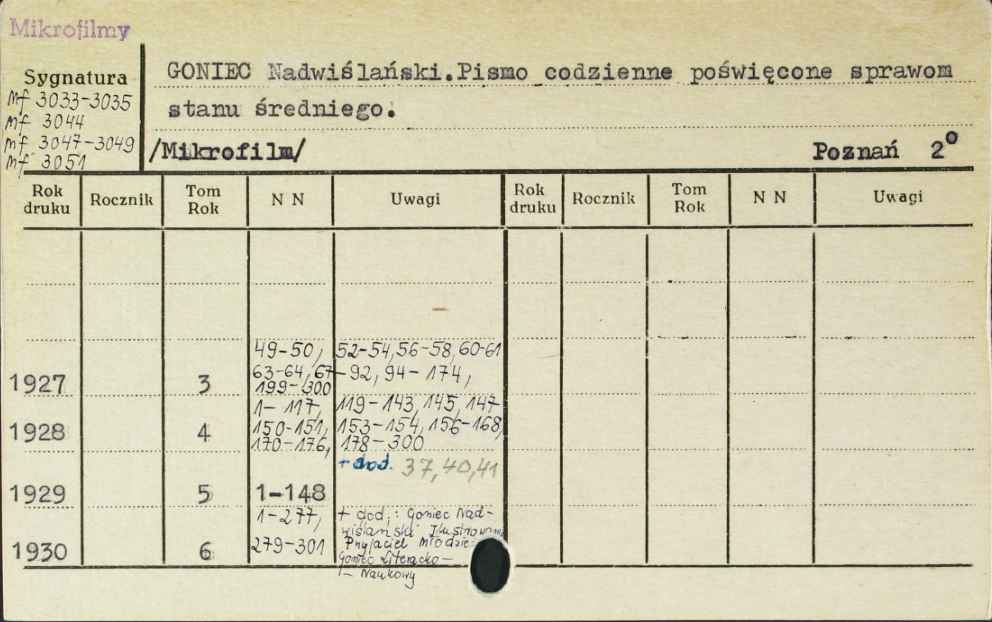 Mikrofilmy
Sygnatura
Mf 3033-3035
Mf 3044
Mf 3047-3049
Mf 3051
GONIEC Nadwiślański.Pismo codzienne poświęcone sprawom
stanu średniego.
/Mikrofilm/ Poznań 2°
Rok druku Rocznik Tom Rok N N Uwagi Rok druku Rocznik Tom Rok N N Uwagi
49-50, 52-54, 56-58, 60-61
63-64, 67-92, 94-174,
1927 3 199-300
1-117, 119-143, 145, 147
1928 4 150-151, 153-154, 156-168,
170-176, 178-300
+ dod. 37, 40, 41
1929 5 1-148
1-277, + dod.: Goniec Nad-
wiślański
1930 6 279-301 Przyjaciel
Goniec Literacko-
- Naukowy